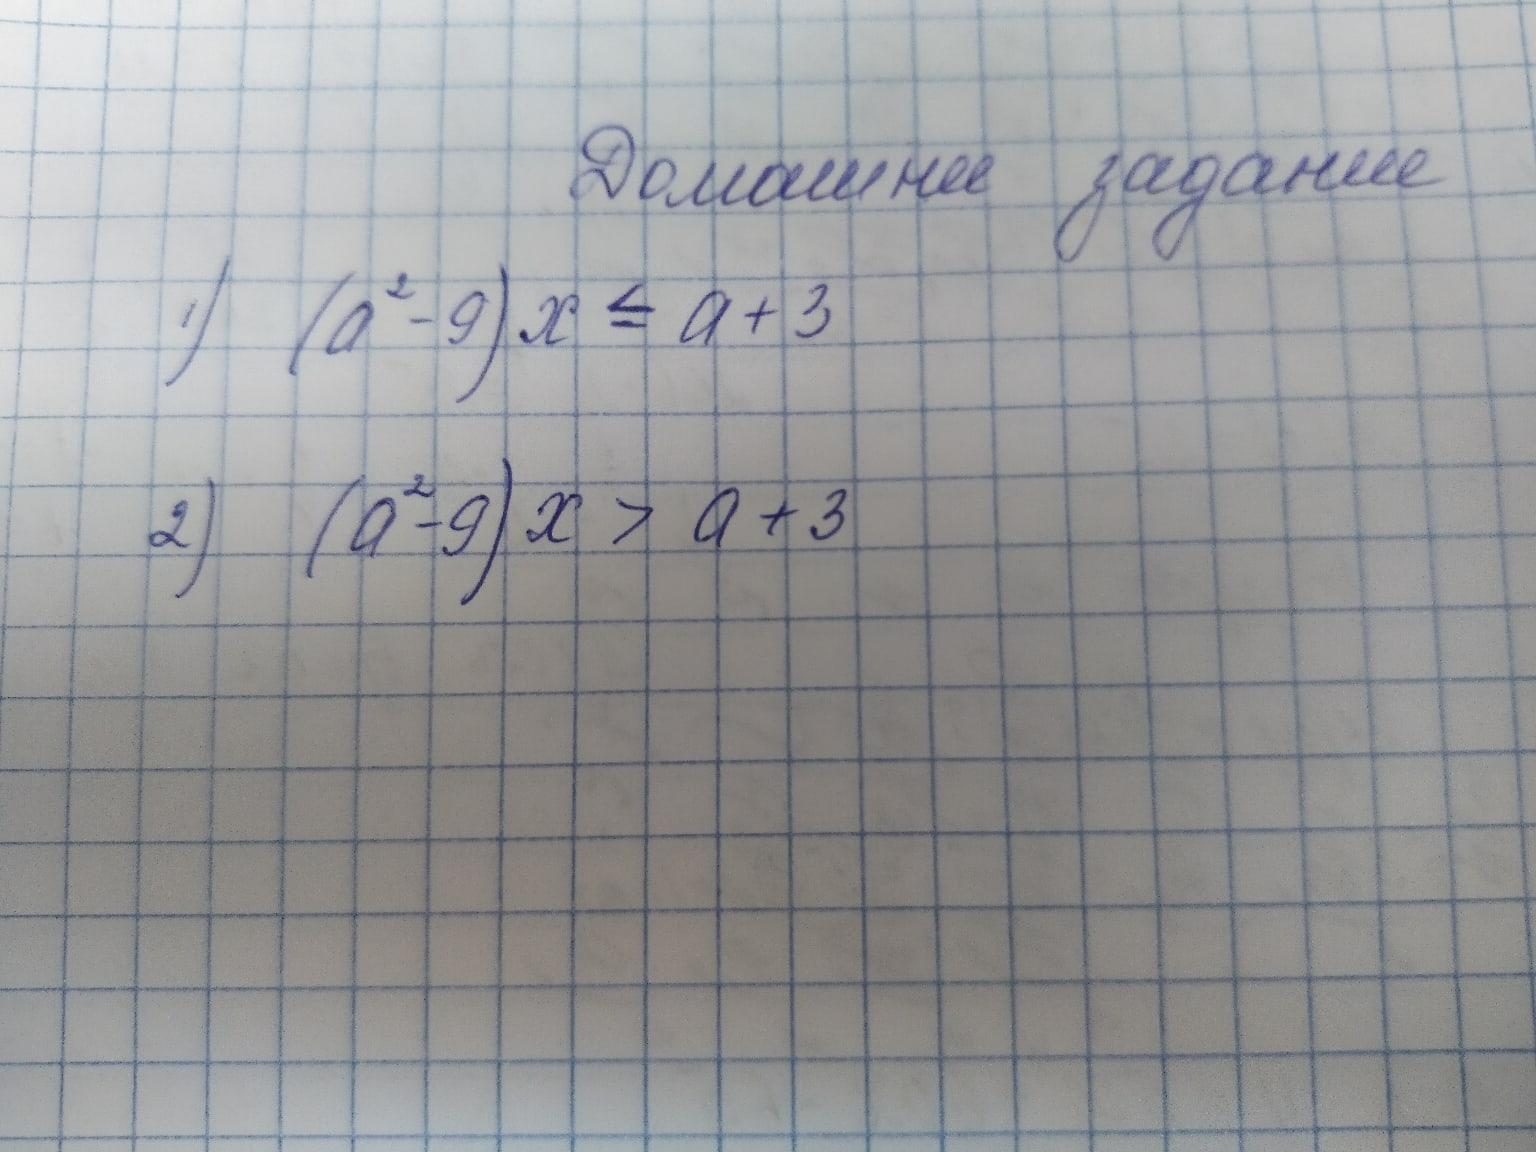 Домашнее задание
1) (a²-9)x ≤ a+3
2) (a²-9)x > a+3